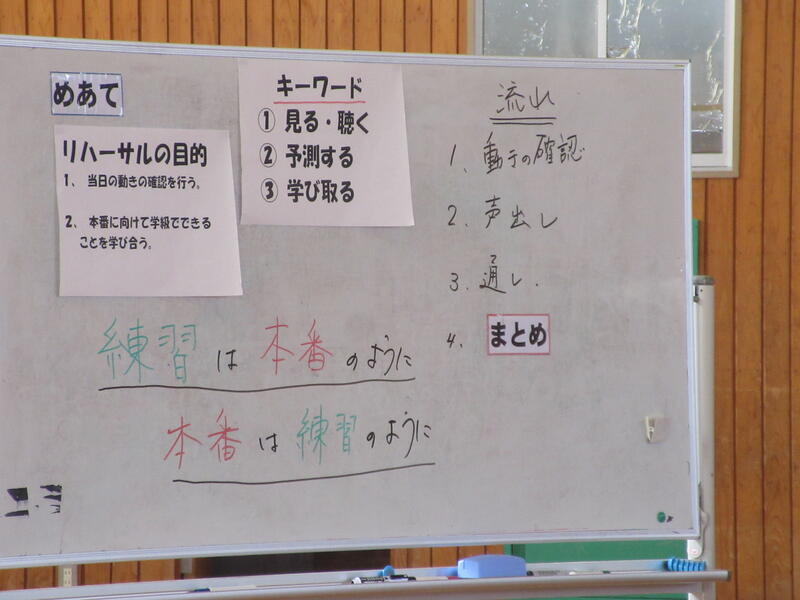 めあて
リハーサルの目的
1、 当日の動きの確認を行う。
2、 本番に向けて学級でできる
ことを学び合う。
キーワード
① 見る・聴く
② 予測する
③ 学び取る
流れ
1. 動きの確認
2. 声出し
3. 通し.
4. まとめ
練習は本番のように
本番は練習のように